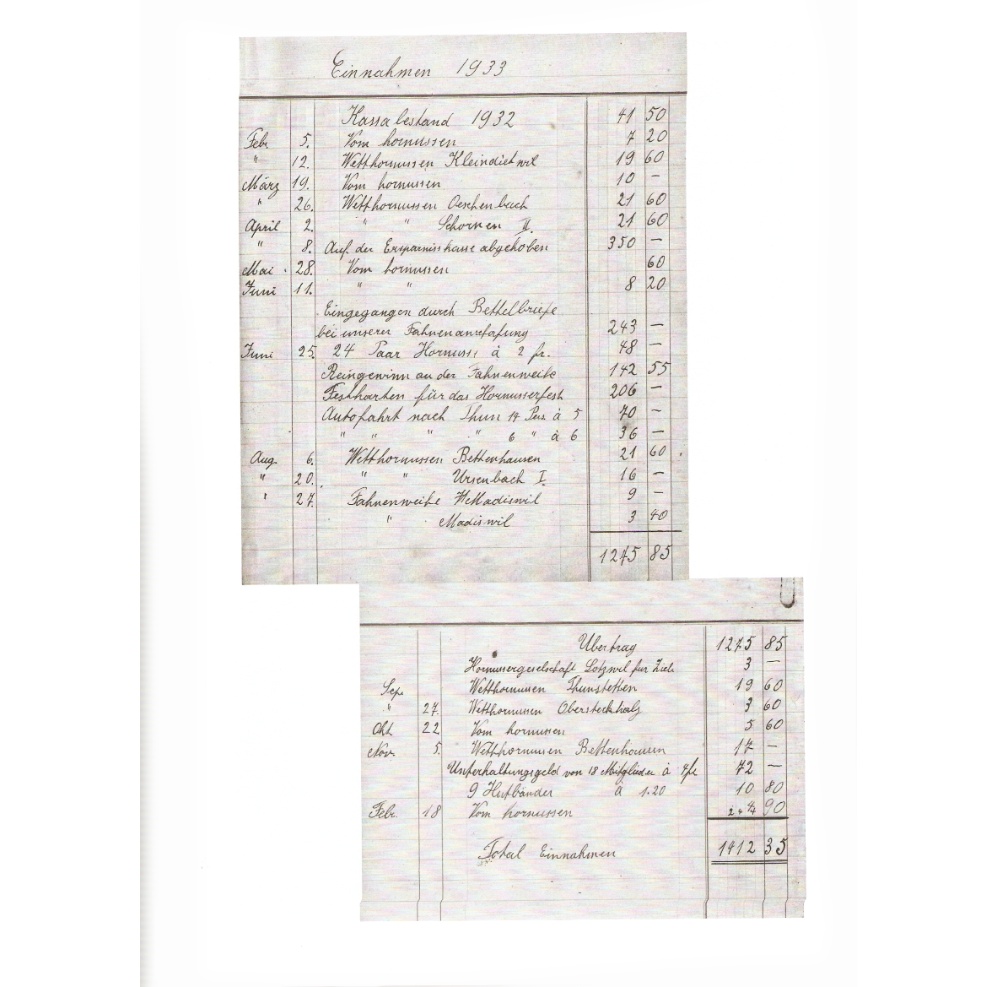 Einnahmen 1933
Kassabestand 1932 41 50
Feb. 5. Vom hornussen 7 20
" 12. Wetthornussen Kleindietwil 19 60
März 19. Vom hornussen 10 –
" 26. Wetthornussen Oeschenbach 21 60
April 2. " " Schoinen II. 21 60
" 8. Auf der Ersparniskasse abgehoben 350 –
Mai 28. Vom hornussen 60
Juni 11. " " 8 20
Eingegangen durch Bettelbriefe
bei unserer Fahnenanschafung 243 –
Juni 25. 24 Paar Hornusse à 2 fr. 48 –
Reingewinn an der Fahnenweihe 142 55
Festkarten für das Hornusserfest 206 –
Autofahrt nach Thun 14 Per. à 5 70 –
" " " " 6 " à 6 36 –
Aug. 6. Wetthornussen Bettenhausen 21 60
" 20. " " Ursenbach I. 16 –
" 27. Fahnenweihe Madiswil 9 –
" Madiswil 3 40
1275 85
Übertrag 1275 85
Hornussergeselschaft Lotzwil für Ziele 3 –
Sep. Wetthornussen Thunstetten 19 60
" 27. Wetthornussen Obersteckholz 3 60
Okt. 22 Vom hornussen 5 60
Nov. 5. Wetthornussen Bettenhausen 17 –
Unterhaltungsgeld von 18 Mitglieder à 4 fr 72 –
9 Hutbänder à 1.20 10 80
Febr. 18 Vom hornussen 90
Total Einnahmen 1412 35